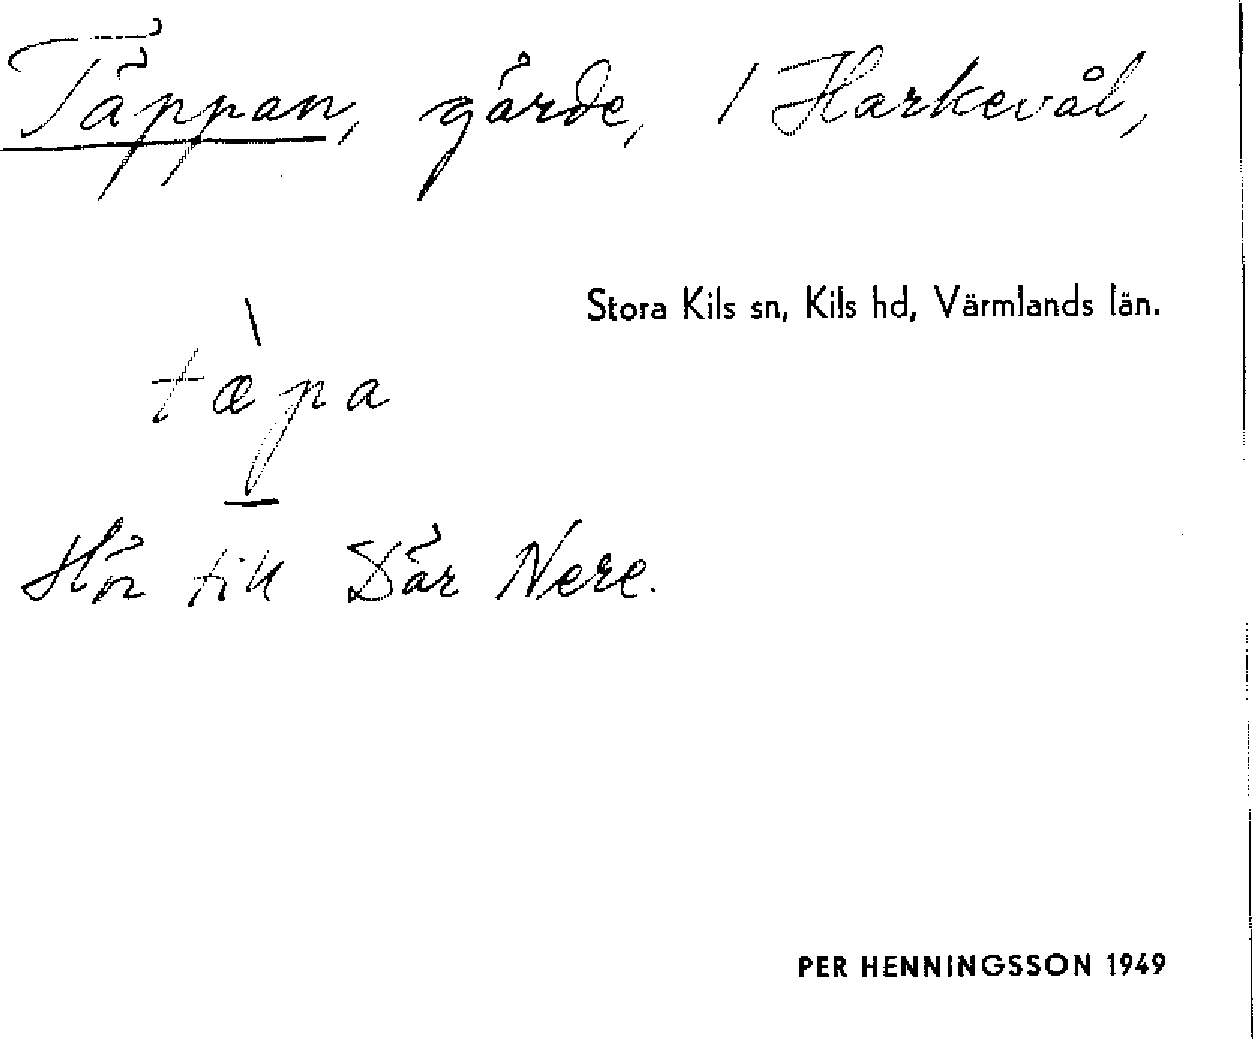 Täppan, gärde, 1 Harkevål,
Stora Kils sn, Kils hd, Värmlands län.
tæ̀pa
Hör till Där Nere.
PER HENNINGSSON 1949